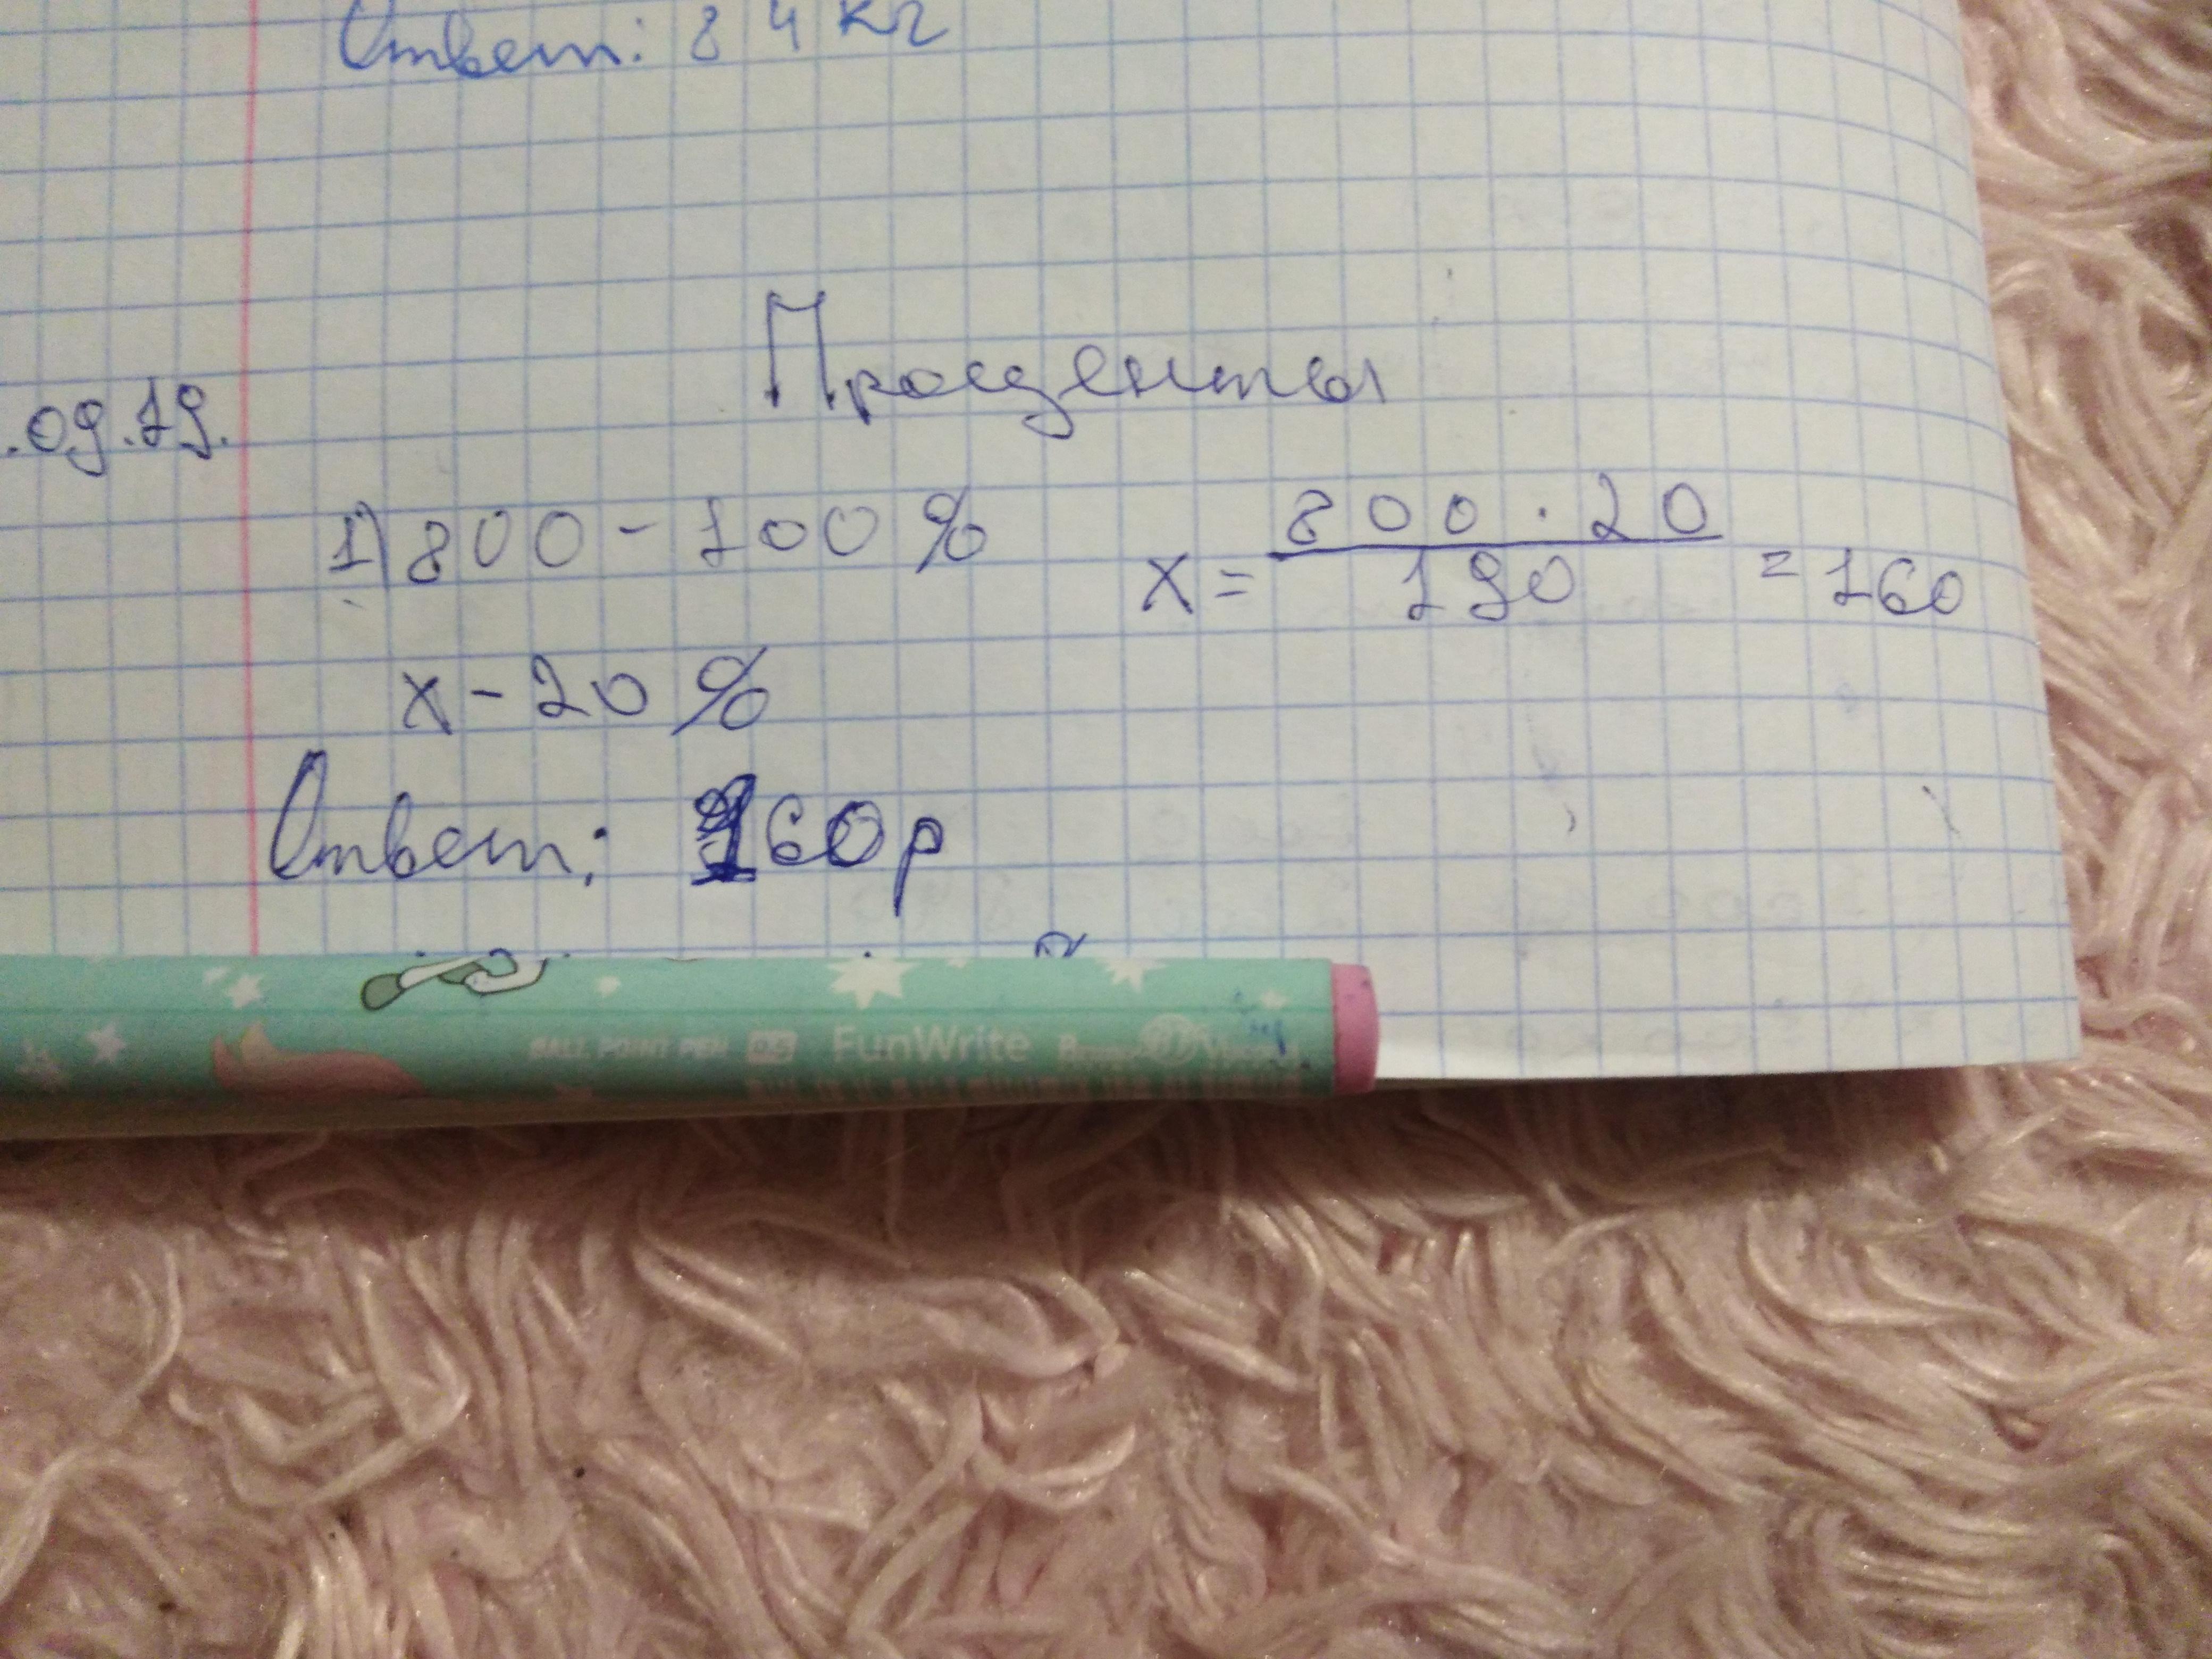 Ответ: 84 кг
Проценты
.09.19.
1) 800 - 100 %
x = 800 · 20 / 190 = 160
x - 20 %
Ответ: 160р
BALL POINT PEN 0.5 FunWrite Bruno Visconti